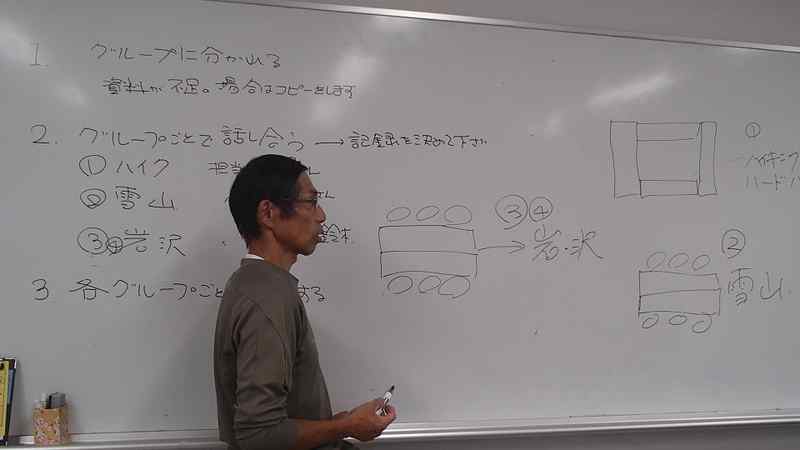 1. グループに分かれる
資料が不足の場合はコピーをします
2. グループごとで話し合う → 記録を決めて下さい
① ハイク 担当 さん
② 雪山 さん
③④岩・沢 鈴木
3 各グループごと する
③④
→ 岩・沢
①
ハイキング
ハードハ
②
雪山